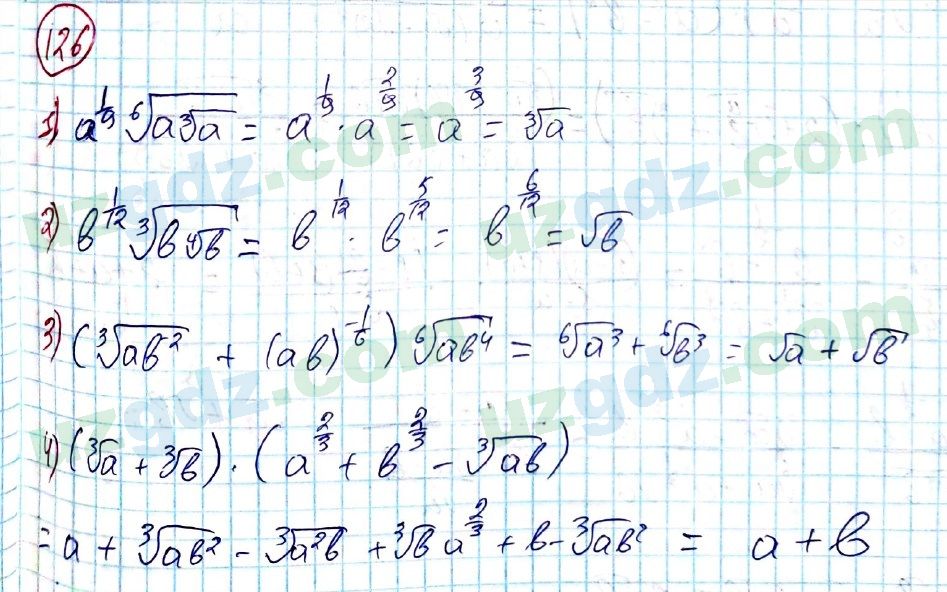 126
1) a^{1/9} \sqrt[6]{a\sqrt[3]{a}} = a^{1/9} · a^{2/9} = a^{3/9} = \sqrt[3]{a}
2) b^{1/12} \sqrt[3]{b\sqrt[4]{b}} = b^{1/12} · b^{5/12} = b^{6/12} = \sqrt{b}
3) (\sqrt[3]{ab^{-2}} + (ab)^{-1/6}) \sqrt[6]{ab^4} = \sqrt[6]{a^3} + \sqrt[6]{b^3} = \sqrt{a} + \sqrt{b}
4) (\sqrt[3]{a} + \sqrt[3]{b}) · (a^{2/3} + b^{2/3} - \sqrt[3]{ab})
= a + \sqrt[3]{ab^2} - \sqrt[3]{a^2b} + \sqrt[3]{b} a^{2/3} + b - \sqrt[3]{ab^2} = a + b
uzgdz.com
uzgdz.com
uzgdz.com
uzgdz.com